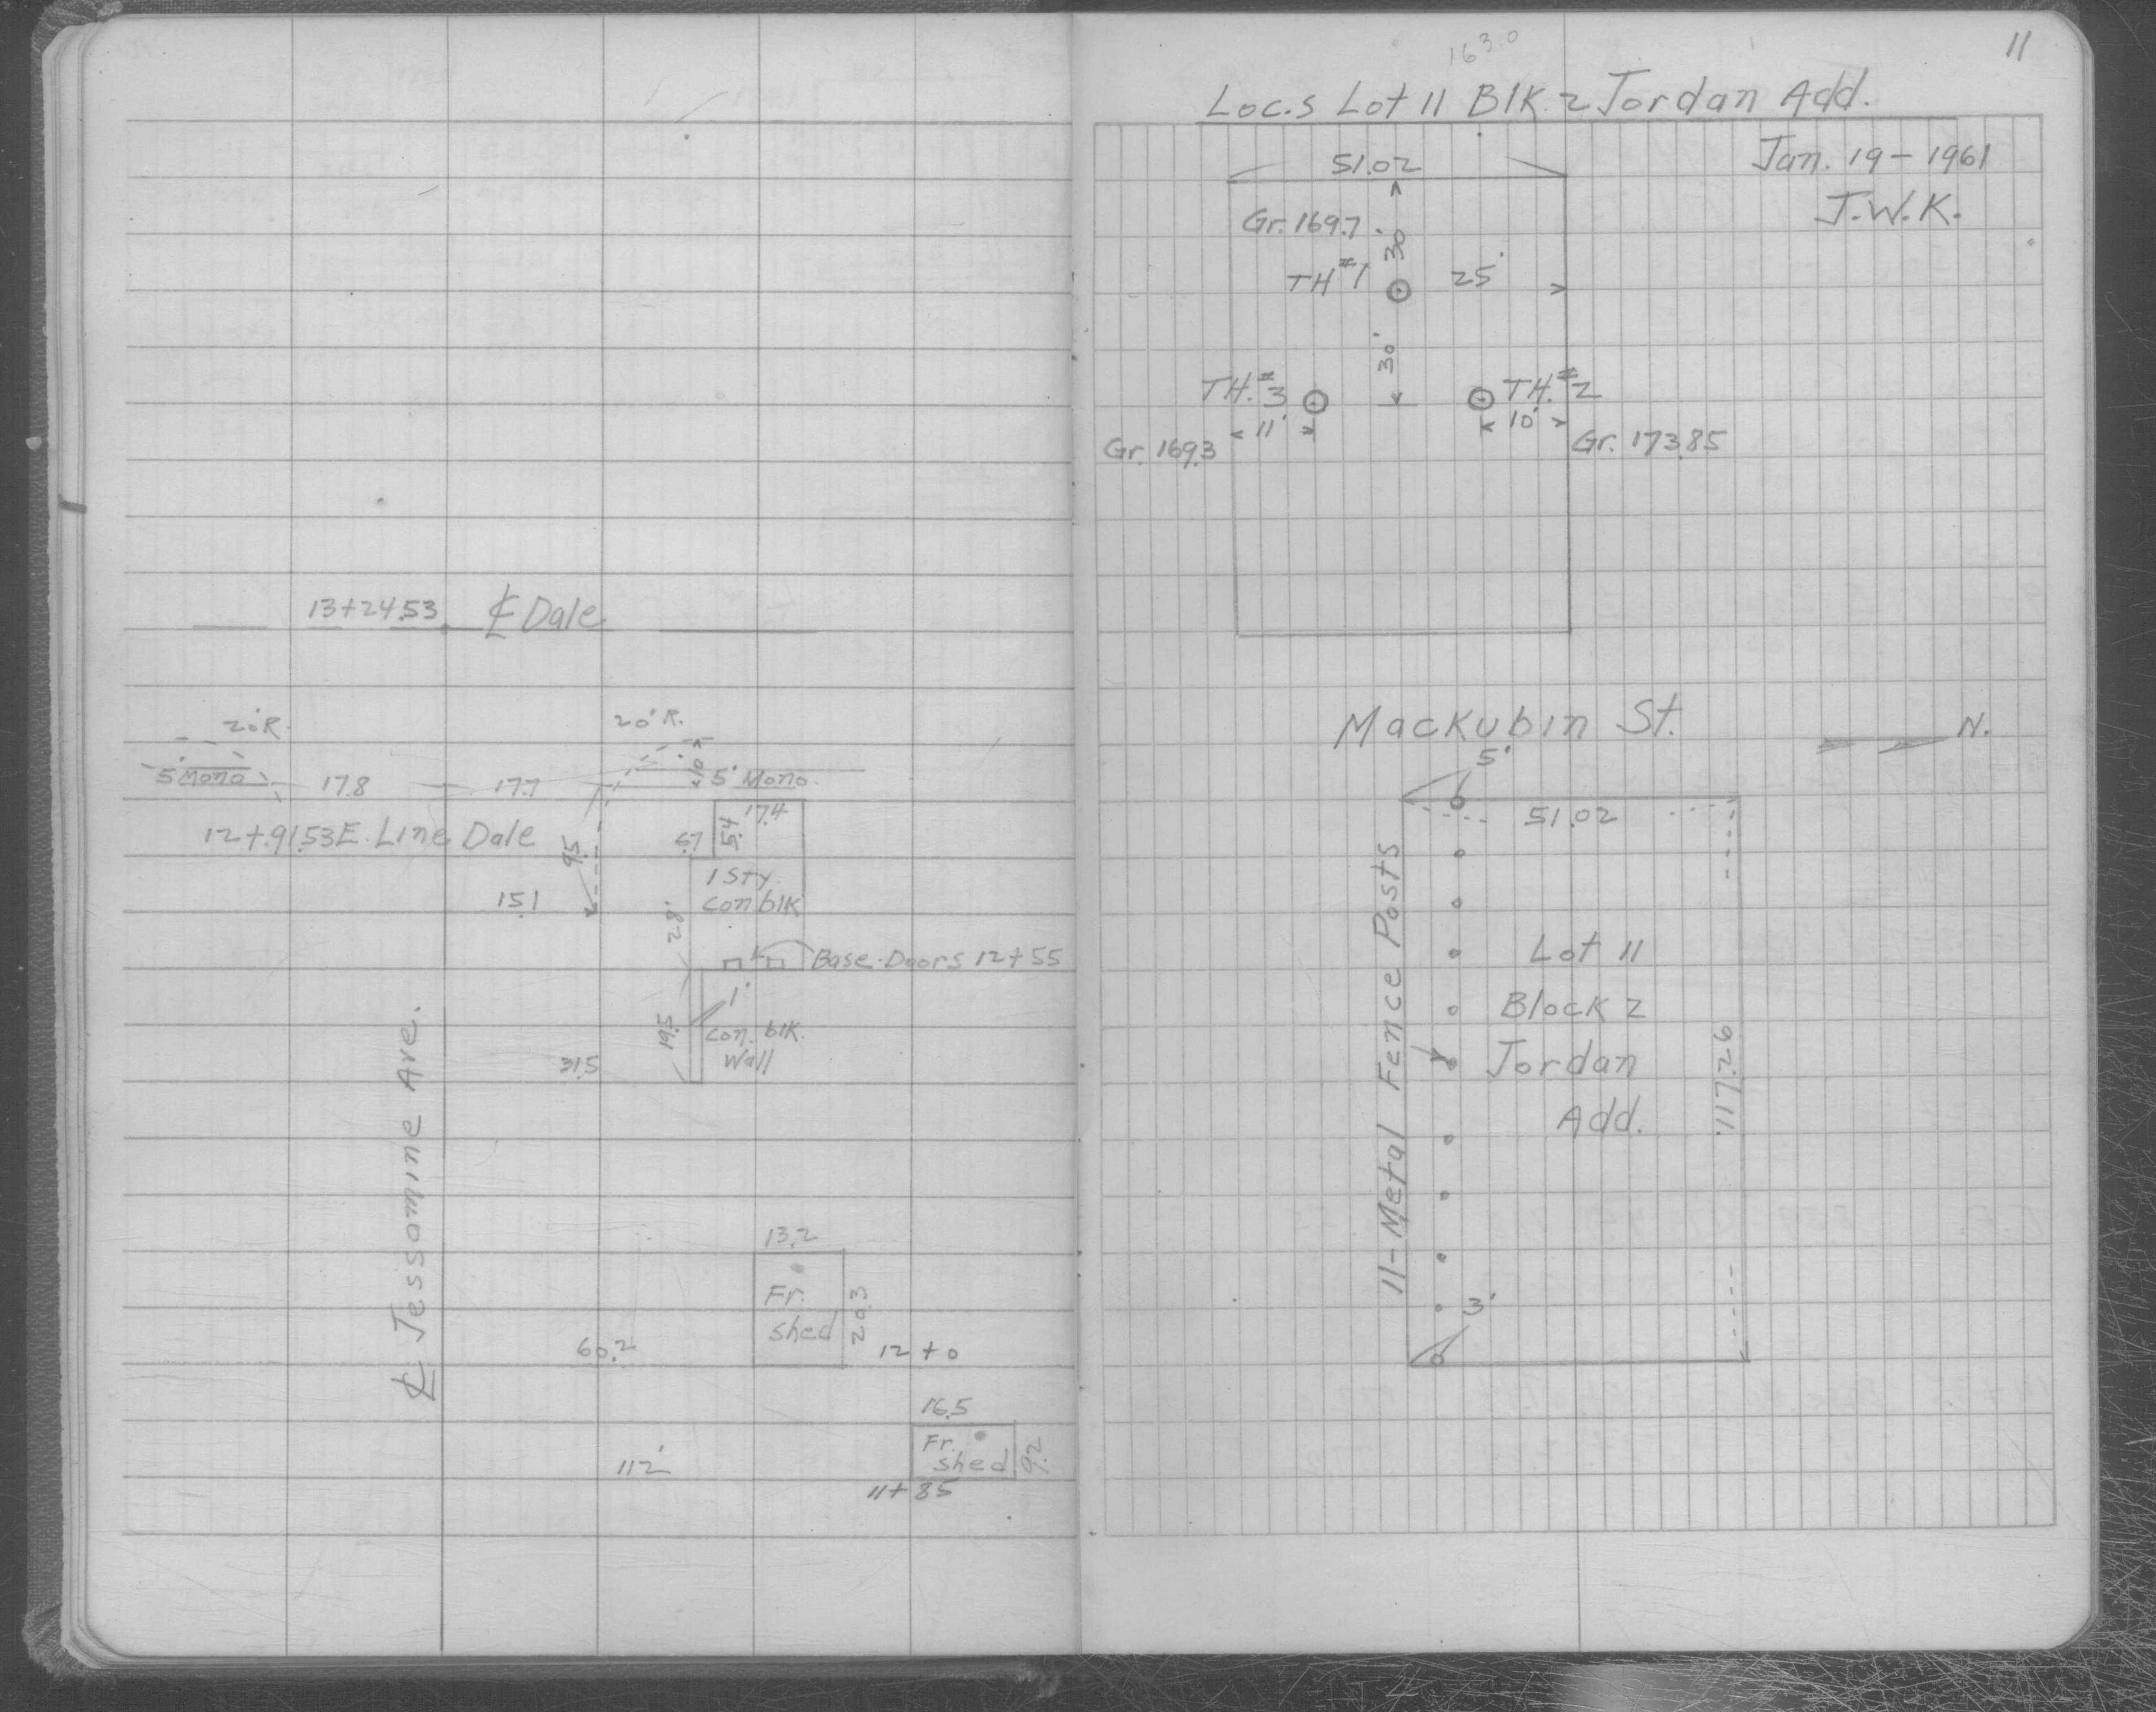 13+24.53 ℄ Dale
20'R.
20'R.
5' Mono
17.8
17.7
10'
5' Mono.
12+91.53 E. Line Dale
9.5
6.7
5.4
17.4
15.1
1 Sty.
con blk
28'
Base. Doors 12+55
1'
19.5
con. blk.
Wall
31.5
℄ Jessomine Ave.
13.2
Fr.
shed
20.3
60.2
12+0
16.5
Fr.
shed
9.2
112'
11+85
11
163.0
Loc.s Lot 11 Blk. 2 Jordan Add.
Jan. 19-1961
J.W.K.
51.02
Gr. 169.7
30'
TH #1
25'
30'
TH. #3
TH. #2
11'
10'
Gr. 169.3
Gr. 173.85
Mackubin St.
N.
5'
51.02
11-Metal Fence Posts
Lot 11
Block 2
Jordan
Add.
117.26
3'